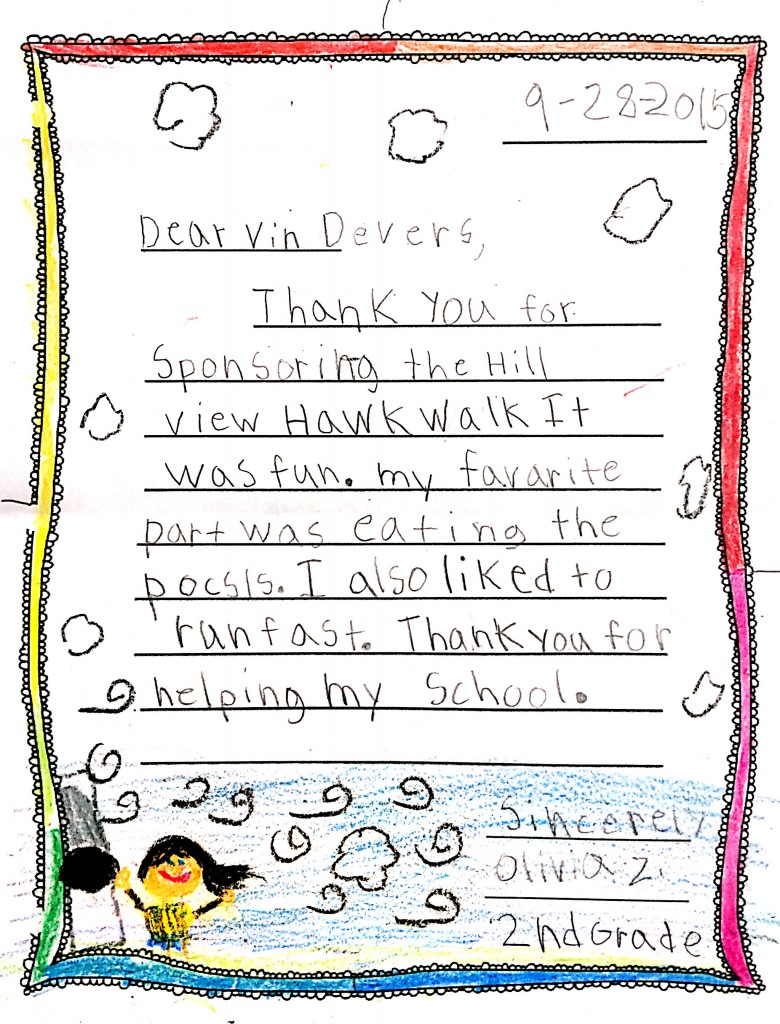 9-28-2015
Dear Vin Devers,
Thank You for
Sponsoring the Hill
view Hawk walk It
was fun. my favarite
part was eating the
pocsls. I also liked to
run fast. Thank you for
helping my School.
Sincerely
Olivia Z.
2nd Grade